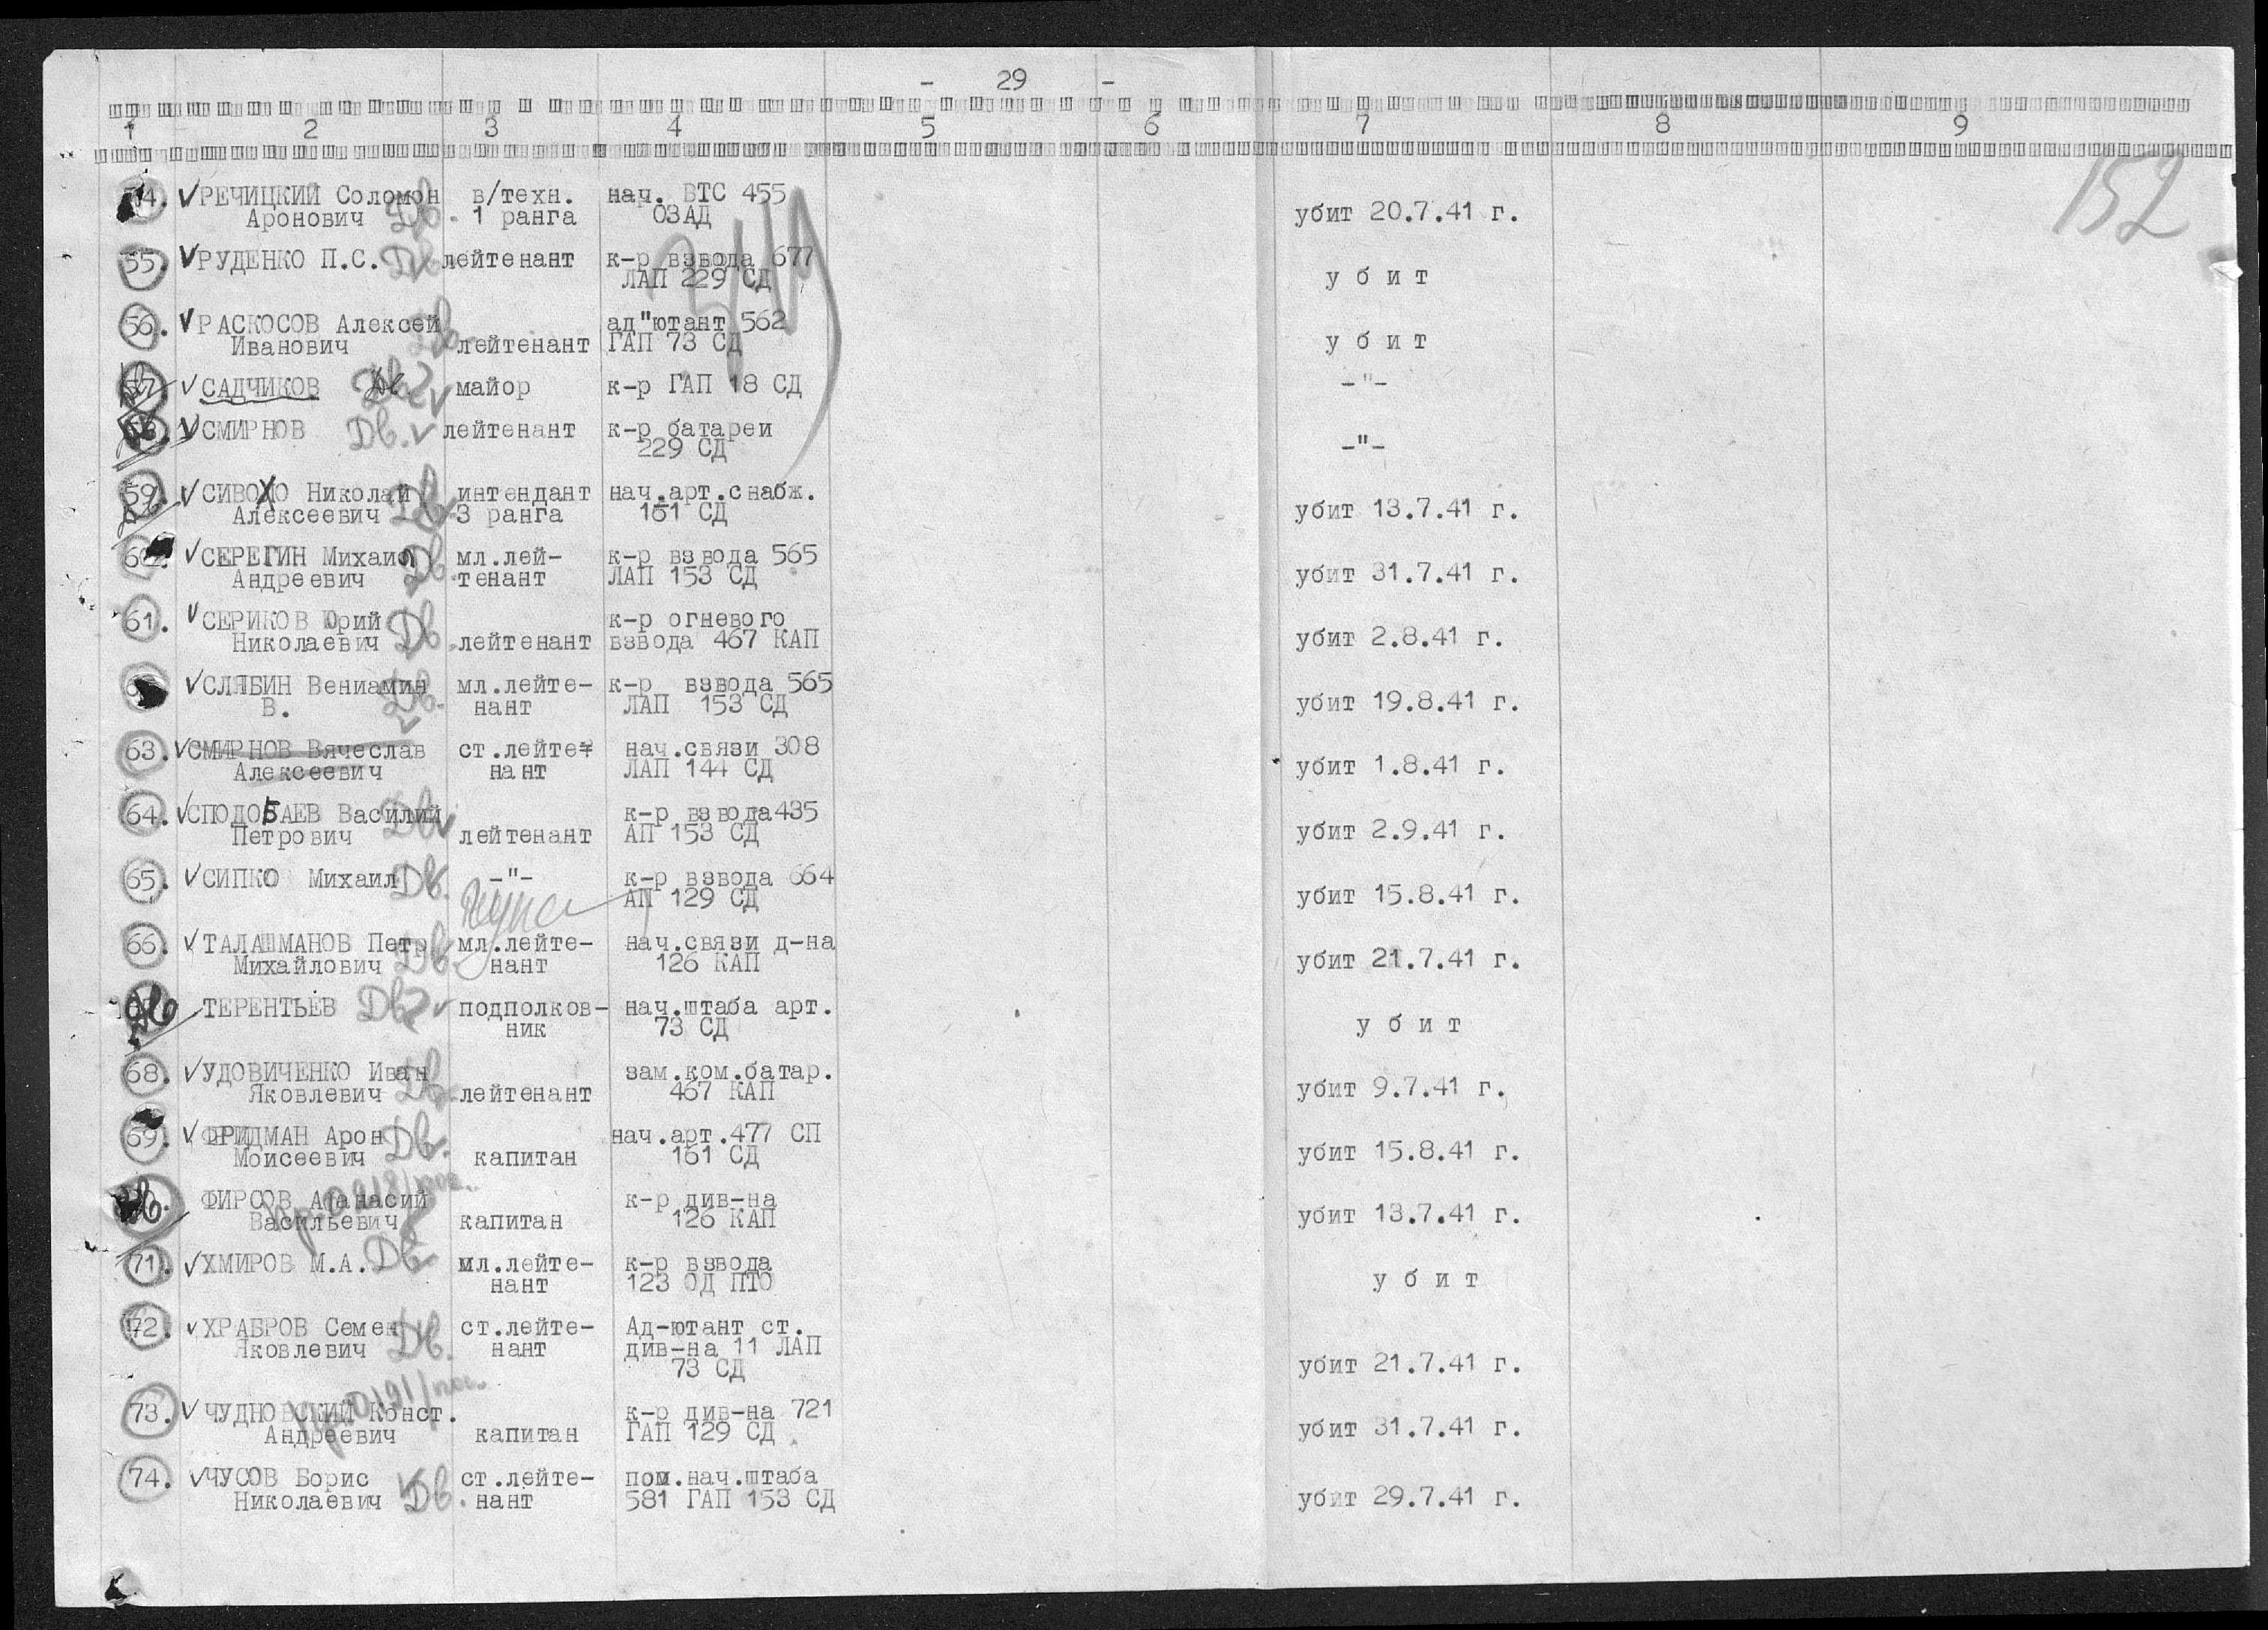 - 29 -
1 2 3 4 5 6 7 8 9
152
54. РЕЧИЦКИЙ Соломон в/техн. нач. ВТС 455
Аронович Дв. 1 ранга ОЗАД убит 20.7.41 г.
55. РУДЕНКО П.С. Дв лейтенант к-р взвода 677
ЛАП 229 СД у б и т
56. РАСКОСОВ Алексей ад"ютант 562
Иванович Дв. лейтенант ГАП 73 СД у б и т
57 САДЧИКОВ Дв? майор к-р ГАП 18 СД -"-
58. СМИРНОВ Дв. лейтенант к-р батареи
229 СД -"-
59. СИВОХО Николай интендант нач.арт.снабж.
Алексеевич Дв. 3 ранга 161 СД убит 13.7.41 г.
60. СЕРЕГИН Михаил мл.лей- к-р взвода 565
Андреевич Дв. тенант ЛАП 153 СД убит 31.7.41 г.
61. СЕРИКОВ Юрий к-р огневого
Николаевич Дв. лейтенант взвода 467 КАП убит 2.8.41 г.
СЛЯБИН Вениамин мл.лейте- к-р взвода 565
В. Дв. нант ЛАП 153 СД убит 19.8.41 г.
63. СМИРНОВ Вячеслав ст.лейте- нач.связи 308
Алексеевич нант ЛАП 144 СД убит 1.8.41 г.
64. СПОДОБАЕВ Василий к-р взвода 435
Петрович Дв лейтенант АП 153 СД убит 2.9.41 г.
65. СИПКО Михаил Дв. -"- к-р взвода 664
АП 129 СД убит 15.8.41 г.
66. ТАЛАШМАНОВ Петр мл.лейте- нач.связи д-на
Михайлович Дв нант 126 КАП убит 21.7.41 г.
ТЕРЕНТЬЕВ Дв? подполков- нач.штаба арт.
ник 73 СД у б и т
68. УДОВИЧЕНКО Иван зам.ком.батар.
Яковлевич Дв. лейтенант 467 КАП убит 9.7.41 г.
69. ФРИДМАН Арон Дв. нач.арт.477 СП
Моисеевич капитан 161 СД убит 15.8.41 г.
ФИРСОВ Афанасий к-р див-на
Васильевич капитан 126 КАП убит 13.7.41 г.
71. ХМИРОВ М.А. Дв мл.лейте- к-р взвода
нант 123 ОД ПТО у б и т
72. ХРАБРОВ Семен ст.лейте- Ад-ютант ст.
Яковлевич Дв. нант див-на 11 ЛАП
73 СД убит 21.7.41 г.
73. ЧУДНОВСКИЙ Конст. к-р див-на 721
Андреевич капитан ГАП 129 СД убит 31.7.41 г.
74. ЧУСОВ Борис ст.лейте- пом.нач.штаба
Николаевич Дв. нант 581 ГАП 153 СД убит 29.7.41 г.